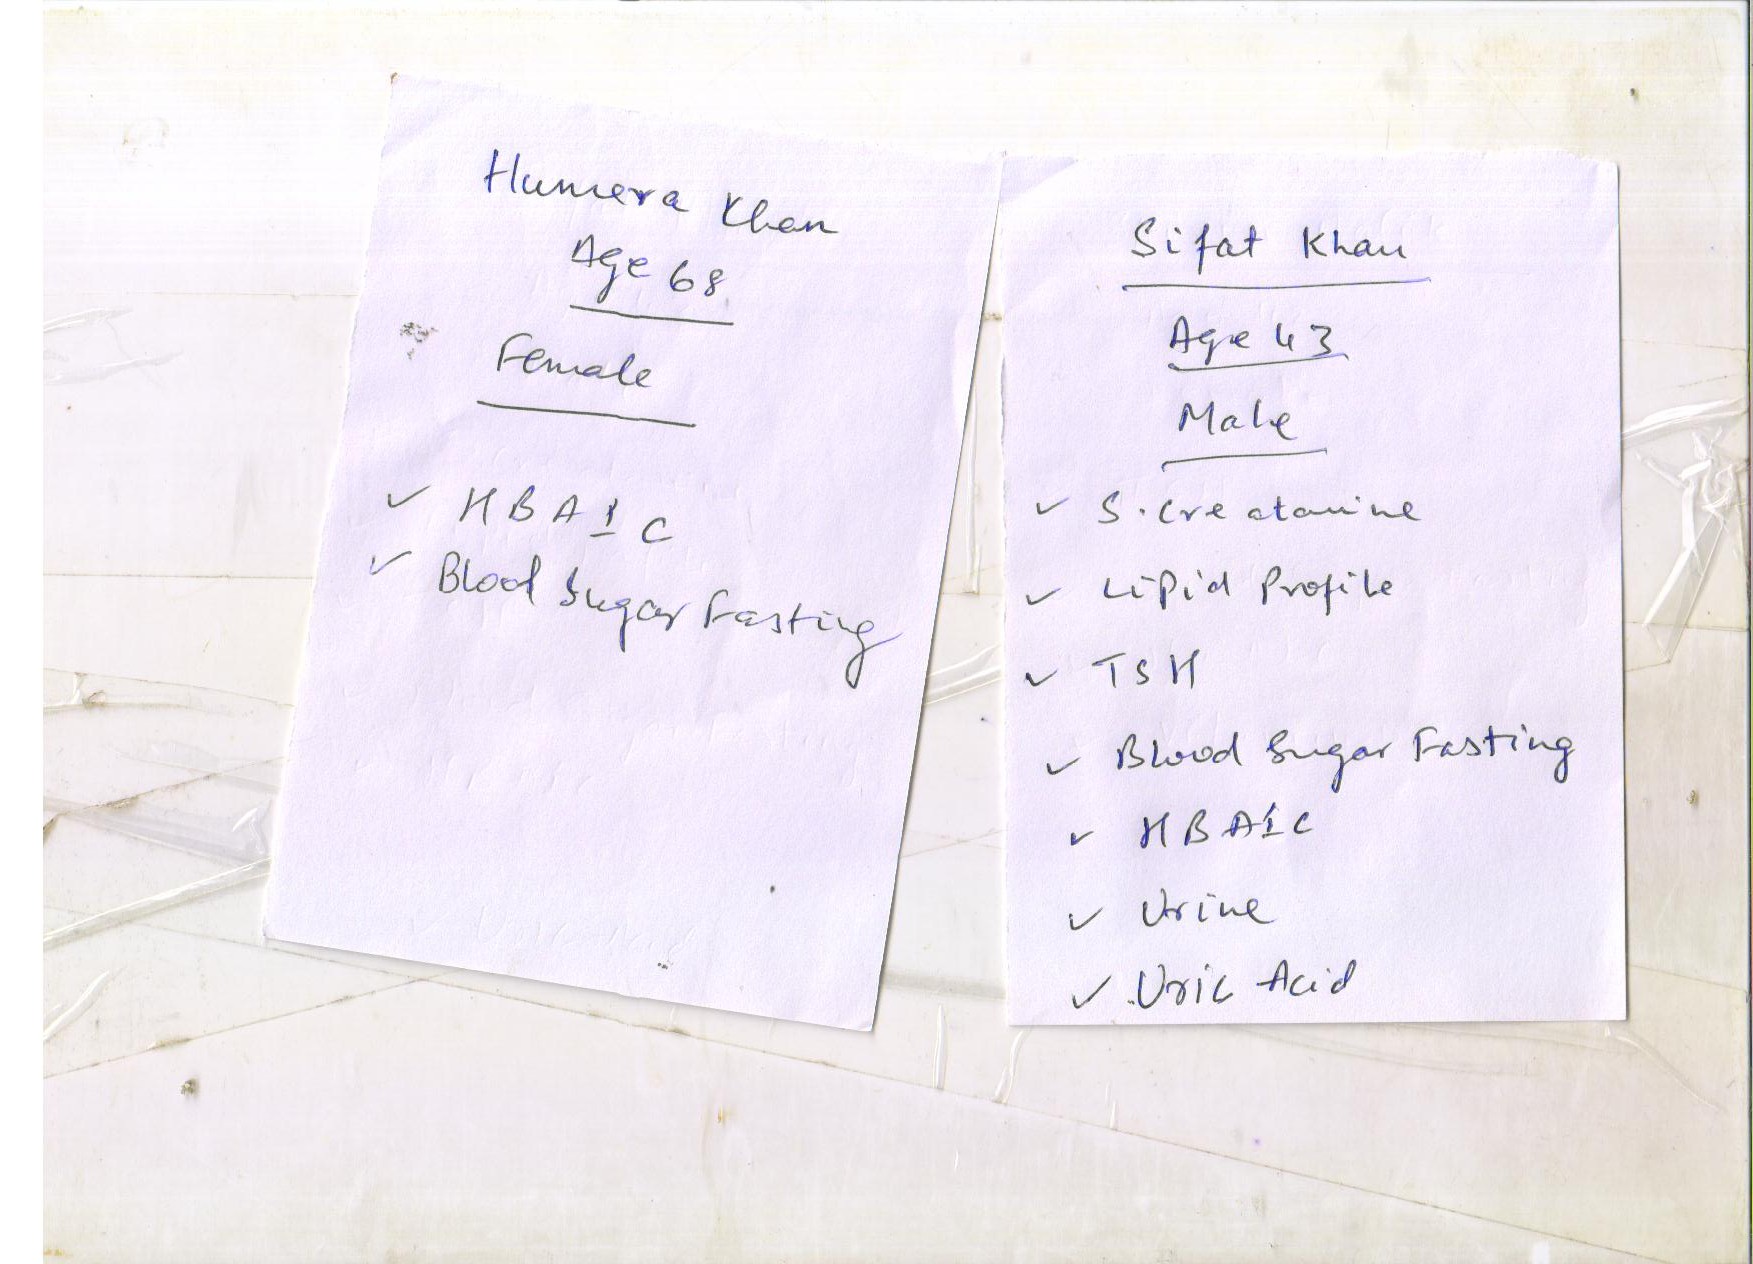 Humera Khan
Age 68
Female
✓ HBA1C
✓ Blood Sugar Fasting
Sifat Khan
Age 43
Male
✓ S. Creatanine
✓ Lipid Profile
✓ TSH
✓ Blood Sugar Fasting
✓ HBA1C
✓ Urine
✓ Uric Acid